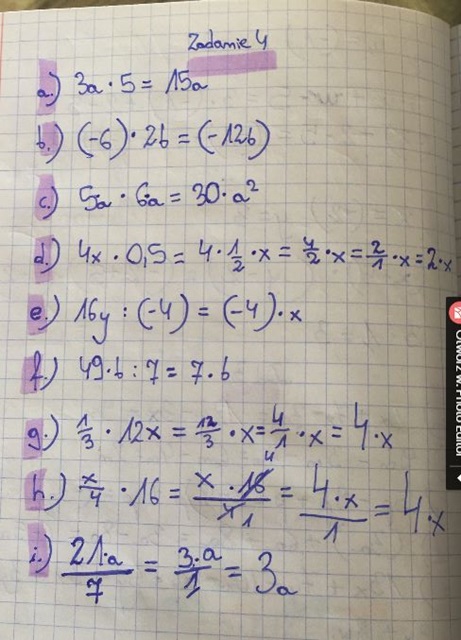 Zadanie 4
a.) 3a · 5 = 15a
b.) (-6) · 2b = (-12b)
c.) 5a · 6a = 30 · a²
d.) 4x · 0,5 = 4 · 1/2 · x = 4/2 · x = 2/1 · x = 2 · x
e.) 16y : (-4) = (-4) · x
f.) 49 · b : 7 = 7 · b
g.) 1/3 · 12x = 12/3 · x = 4/1 · x = 4 · x
h.) x/4 · 16 = x · 16 4/4 1 = 4 · x/1 = 4 · x
i.) 21 · a/7 = 3 · a/1 = 3a
Otwórz w: Photo Editor